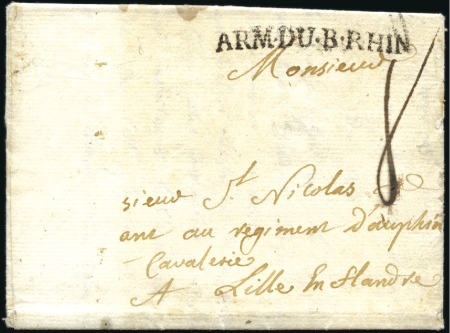 ARM·DU·B·RHIN
Monsieur
8
sieur St. Nicolas
ant au regiment Dauphin
Cavalerie
A Lille En flandre